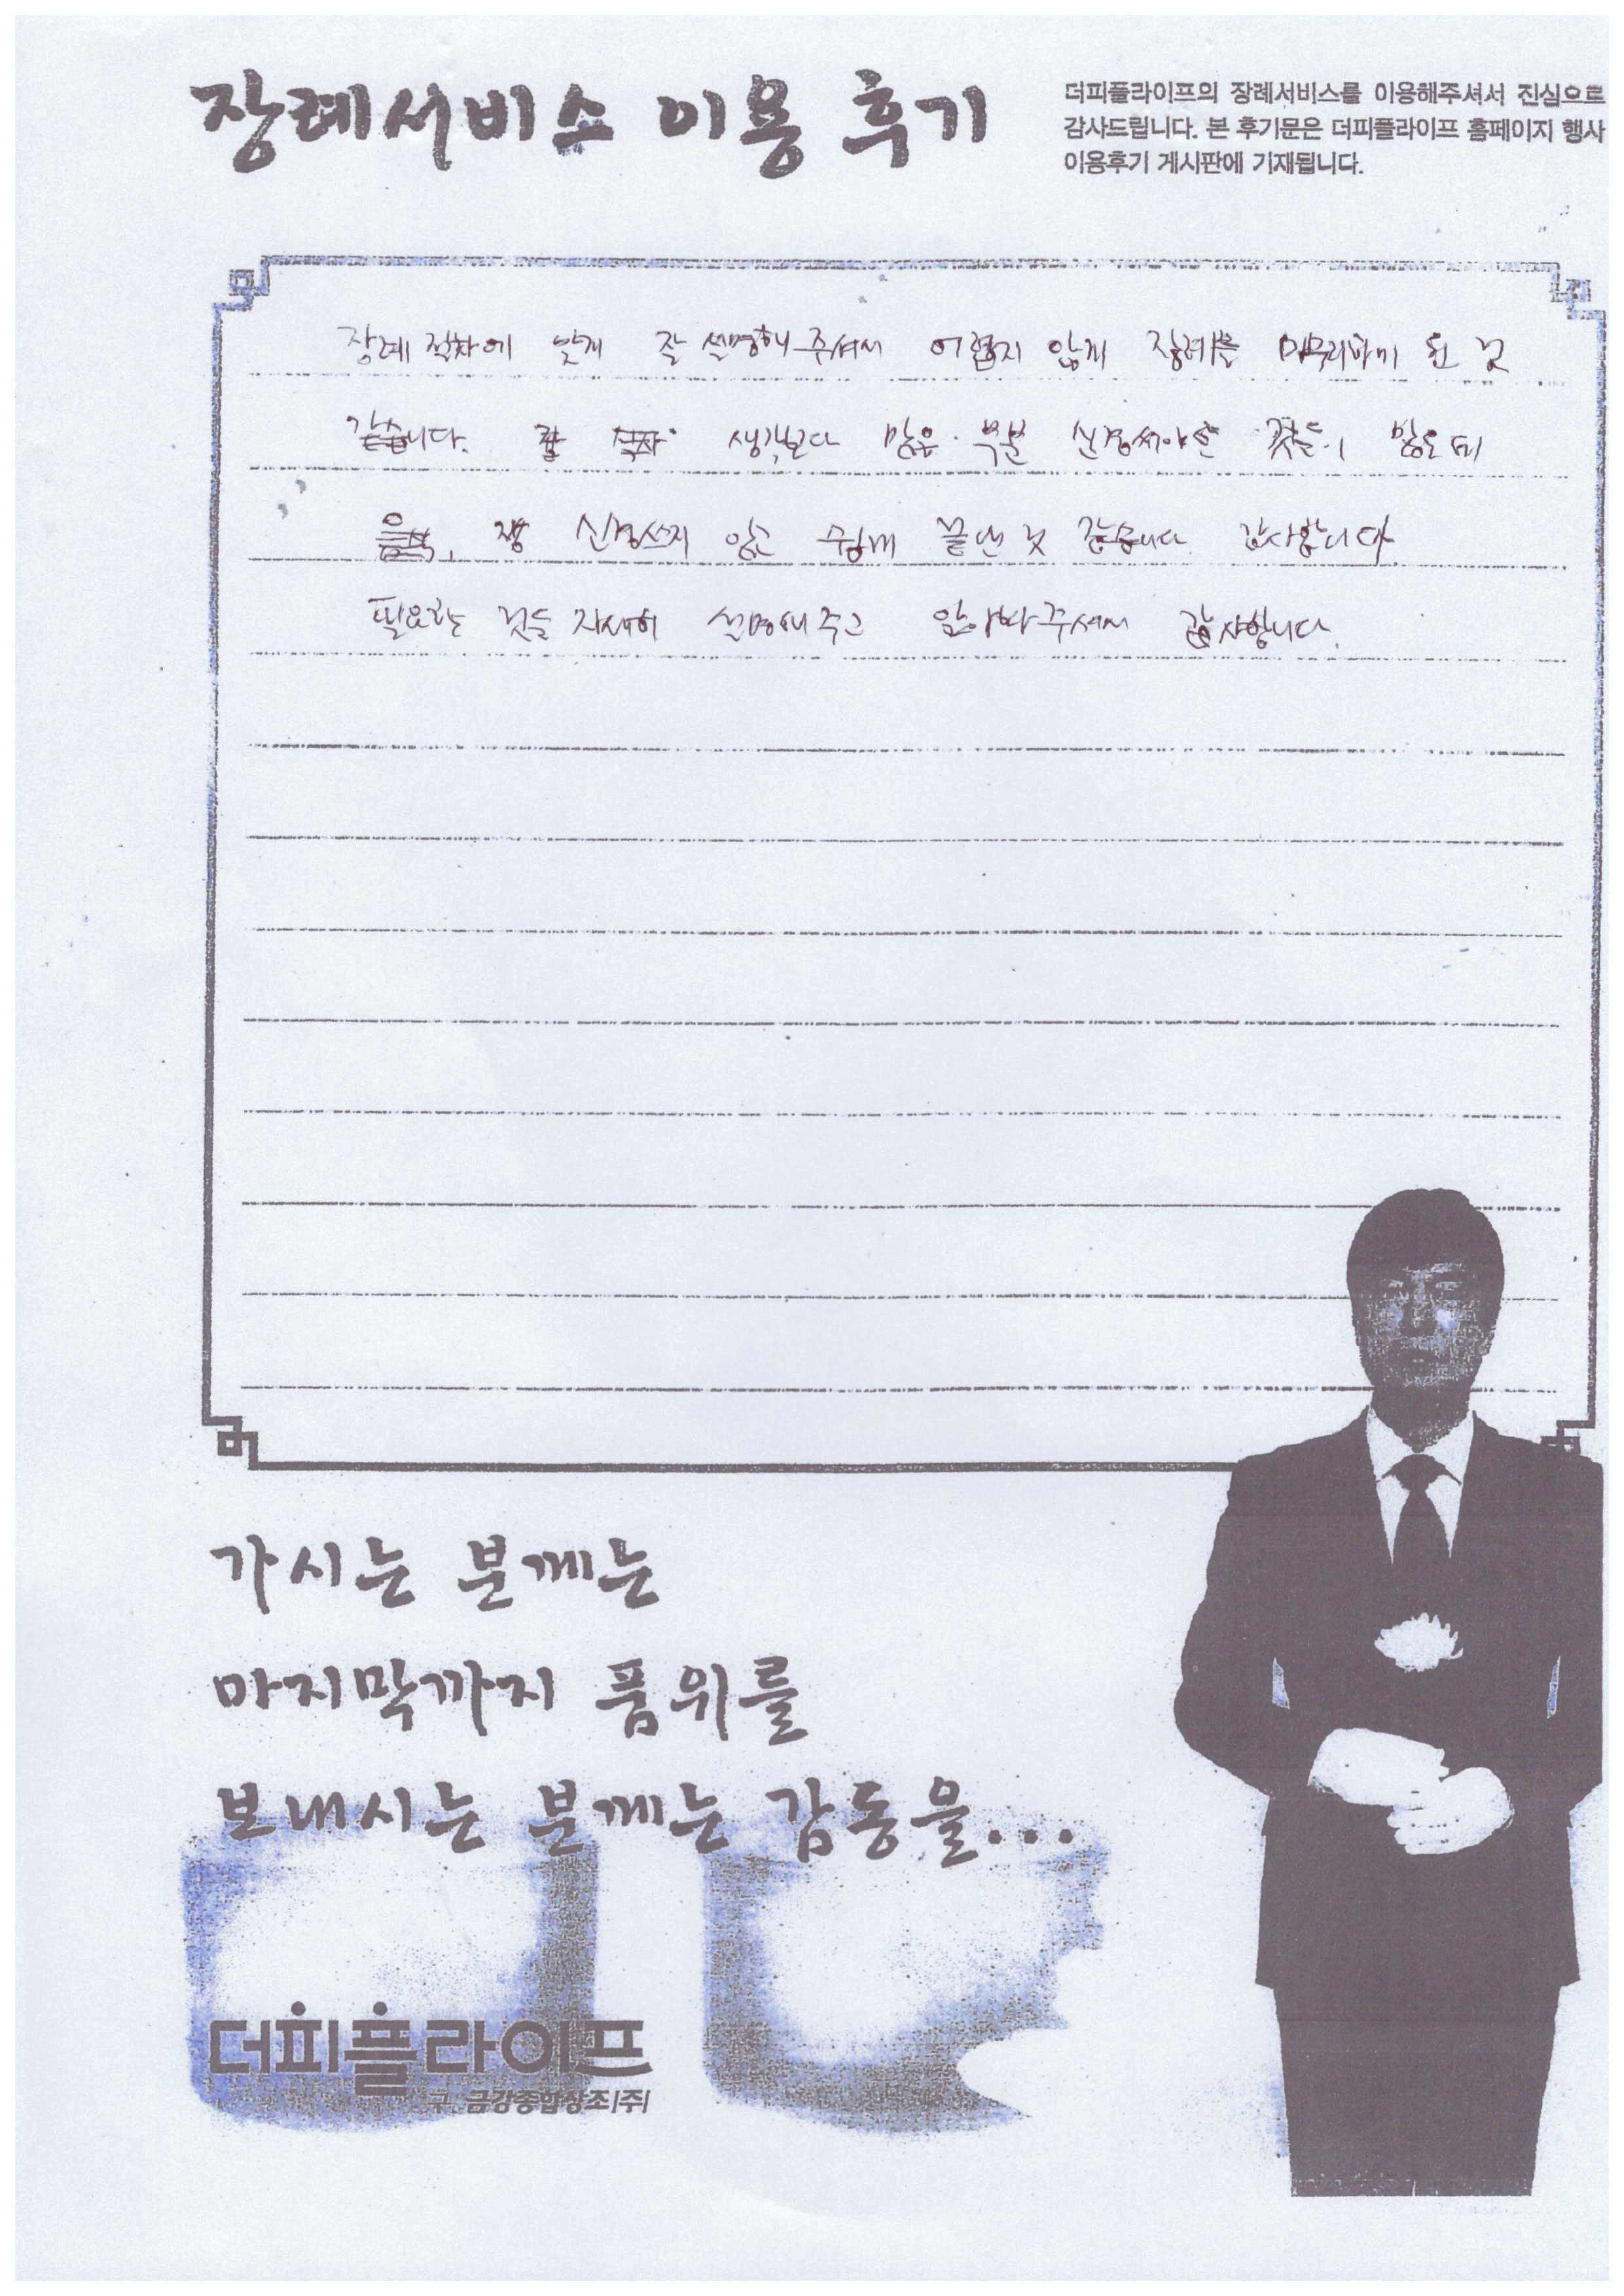 장례서비스 이용 후기
더피플라이프의 장례서비스를 이용해주셔서 진심으로
감사드립니다. 본 후기문은 더피플라이프 홈페이지 행사
이용후기 게시판에 기재됩니다.
장례 절차에 맞게 잘 설명해 주셔서 어렵지 않게 장례를 마무리하게 된 것
같습니다. 생각보다 많은 부분 신경써야 할 것들이 많은데
신경쓰지 않고 쉽게 끝낸 것 같습니다. 감사합니다.
필요한 것들 자세히 설명해주고 알아봐주셔서 감사합니다.
가시는 분께는
마지막까지 품위를
보내시는 분께는 감동을...
더피플라이프
구. 금강종합상조(주)